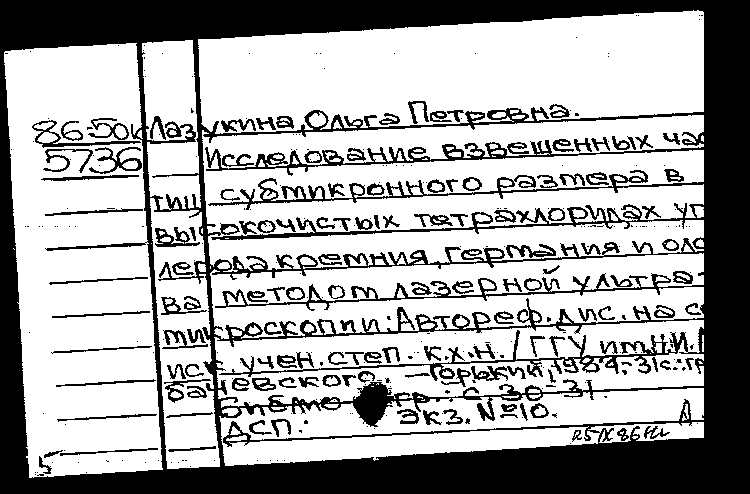 86-50к Лазукина, Ольга Петровна.
5736 Исследование взвешенных час
тиц субмикронного размера в
высокочистых тетрахлоридах уг
лерода, кремния, германия и оло
ва методом лазерной ультра-
микроскопии: Автореф. дис. на с
иск. учен. степ. к.х.н. / ГГУ им. Н.И. Л
бачевского. - Горький, 1984. - 31 с.: гр
Библиогр.: с. 30-31.
ДСП.: Экз. №10.
5 25/IX 86 Д